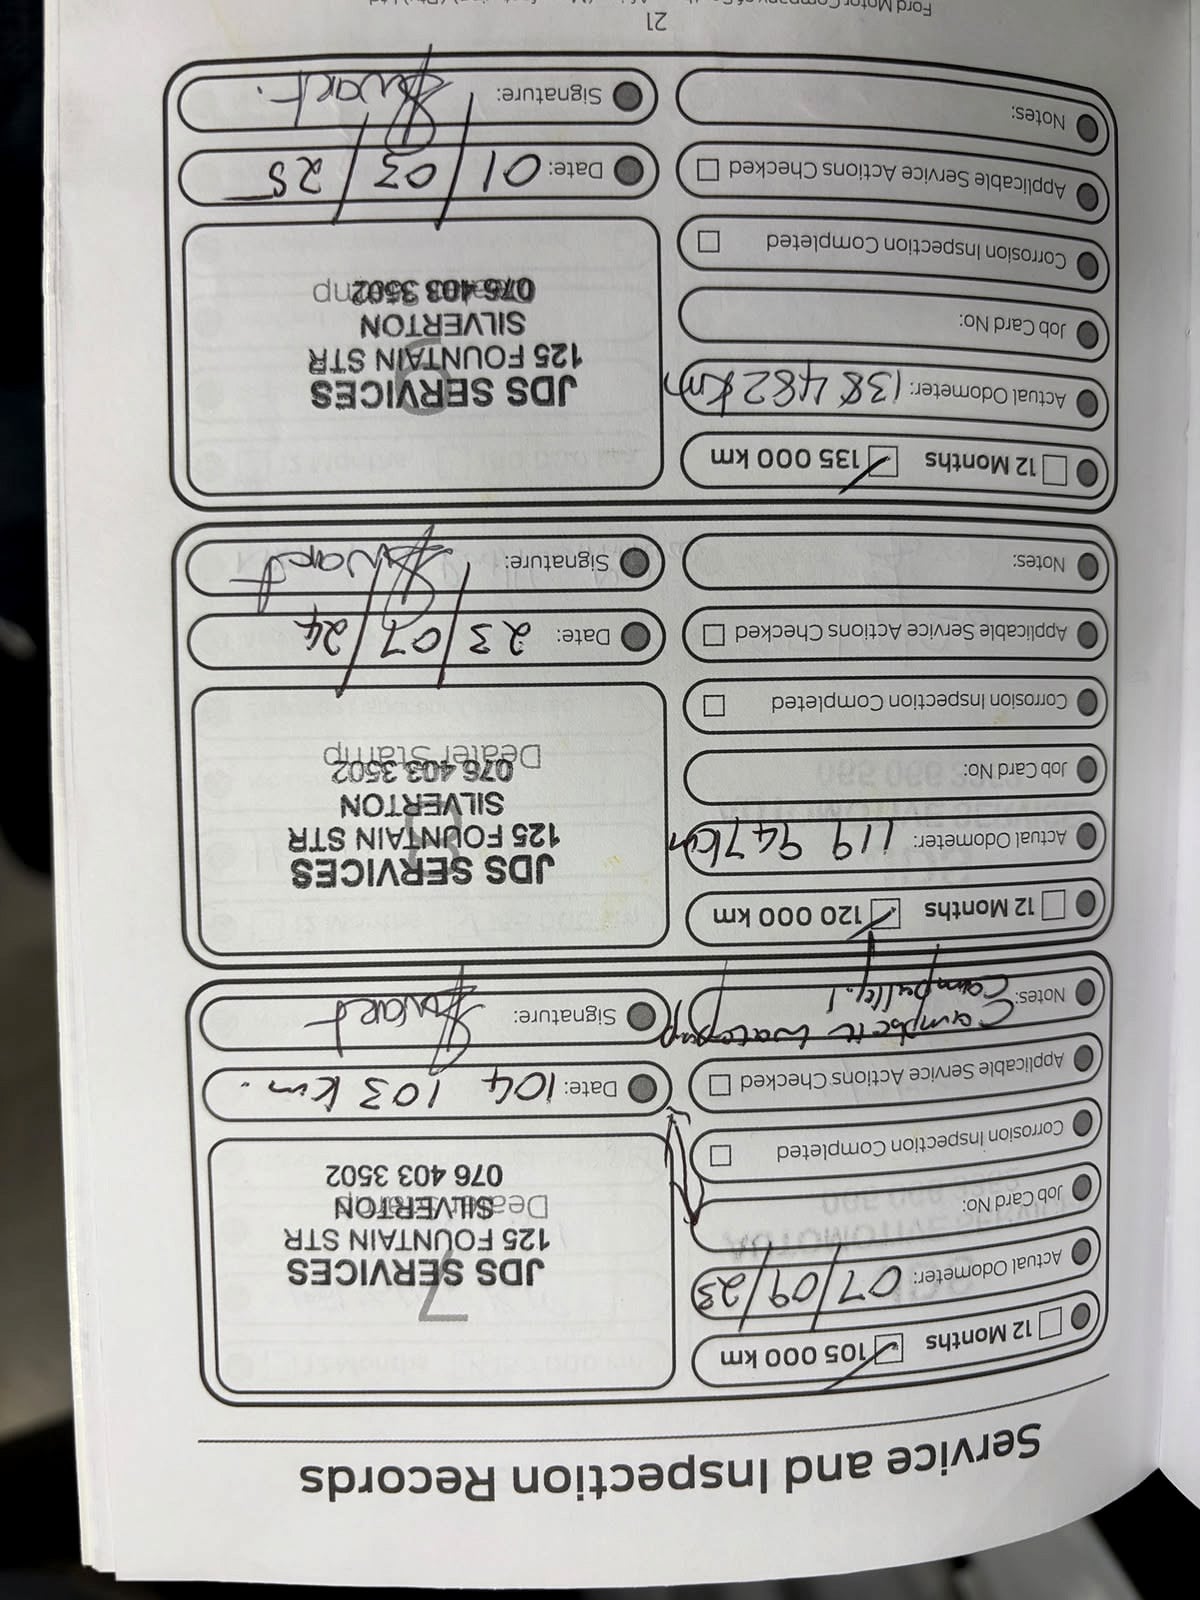 Service and Inspection Records
12 Months 105 000 km
Actual Odometer: 07/09/23
Job Card No:
Corrosion Inspection Completed
Applicable Service Actions Checked
Notes:
Cambelt waterpump
Campulley.!
7
JDS SERVICES
125 FOUNTAIN STR
SILVERTON
Dealer Stamp
076 403 3502
Date: 104 103 km.
Signature: Swart
12 Months 120 000 km
Actual Odometer: 119 947km
Job Card No:
Corrosion Inspection Completed
Applicable Service Actions Checked
Notes:
8
JDS SERVICES
125 FOUNTAIN STR
SILVERTON
076 403 3502
Dealer Stamp
Date: 23/07/24
Signature: Swart
12 Months 135 000 km
Actual Odometer: 138 482km
Job Card No:
Corrosion Inspection Completed
Applicable Service Actions Checked
Notes:
9
JDS SERVICES
125 FOUNTAIN STR
SILVERTON
076 403 3502
Dealer Stamp
Date: 01/03/25
Signature: Swart.
21